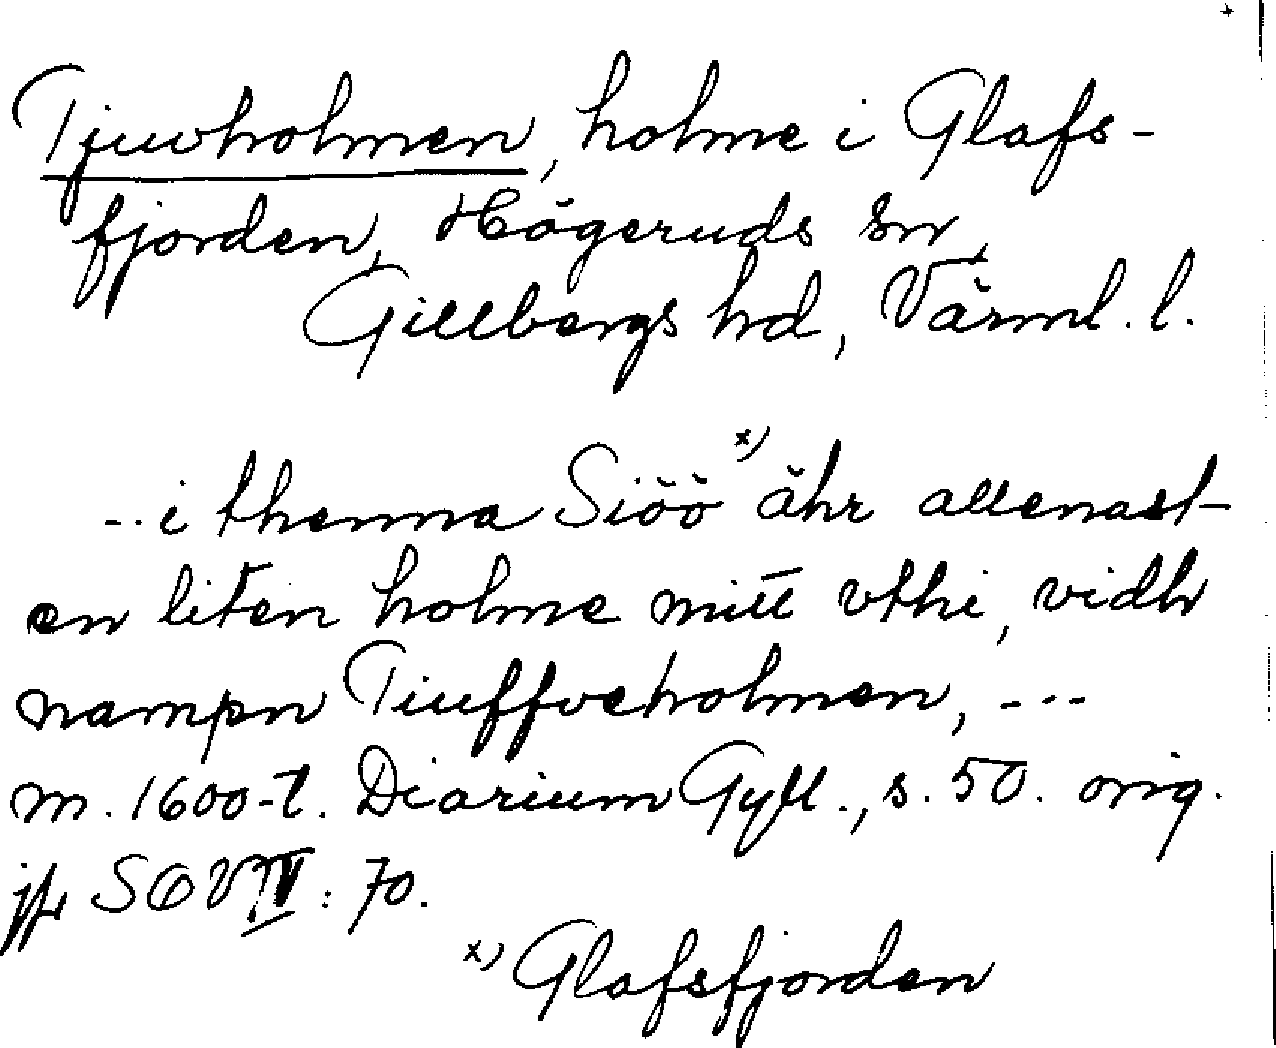 Tjuvholmen, holme i Glafs-
fjorden, Högeruds sn,
Gillbergs hd, Värml. l.
-.. i thenna Siöö x) ähr allenast
en liten holme mitt vthi, vidh
nampn Tiuffveholmen, -..
m. 1600-t. Diarium Gyll., s. 50. orig.
jfr SOV IV: 70.
x) Glafsfjorden